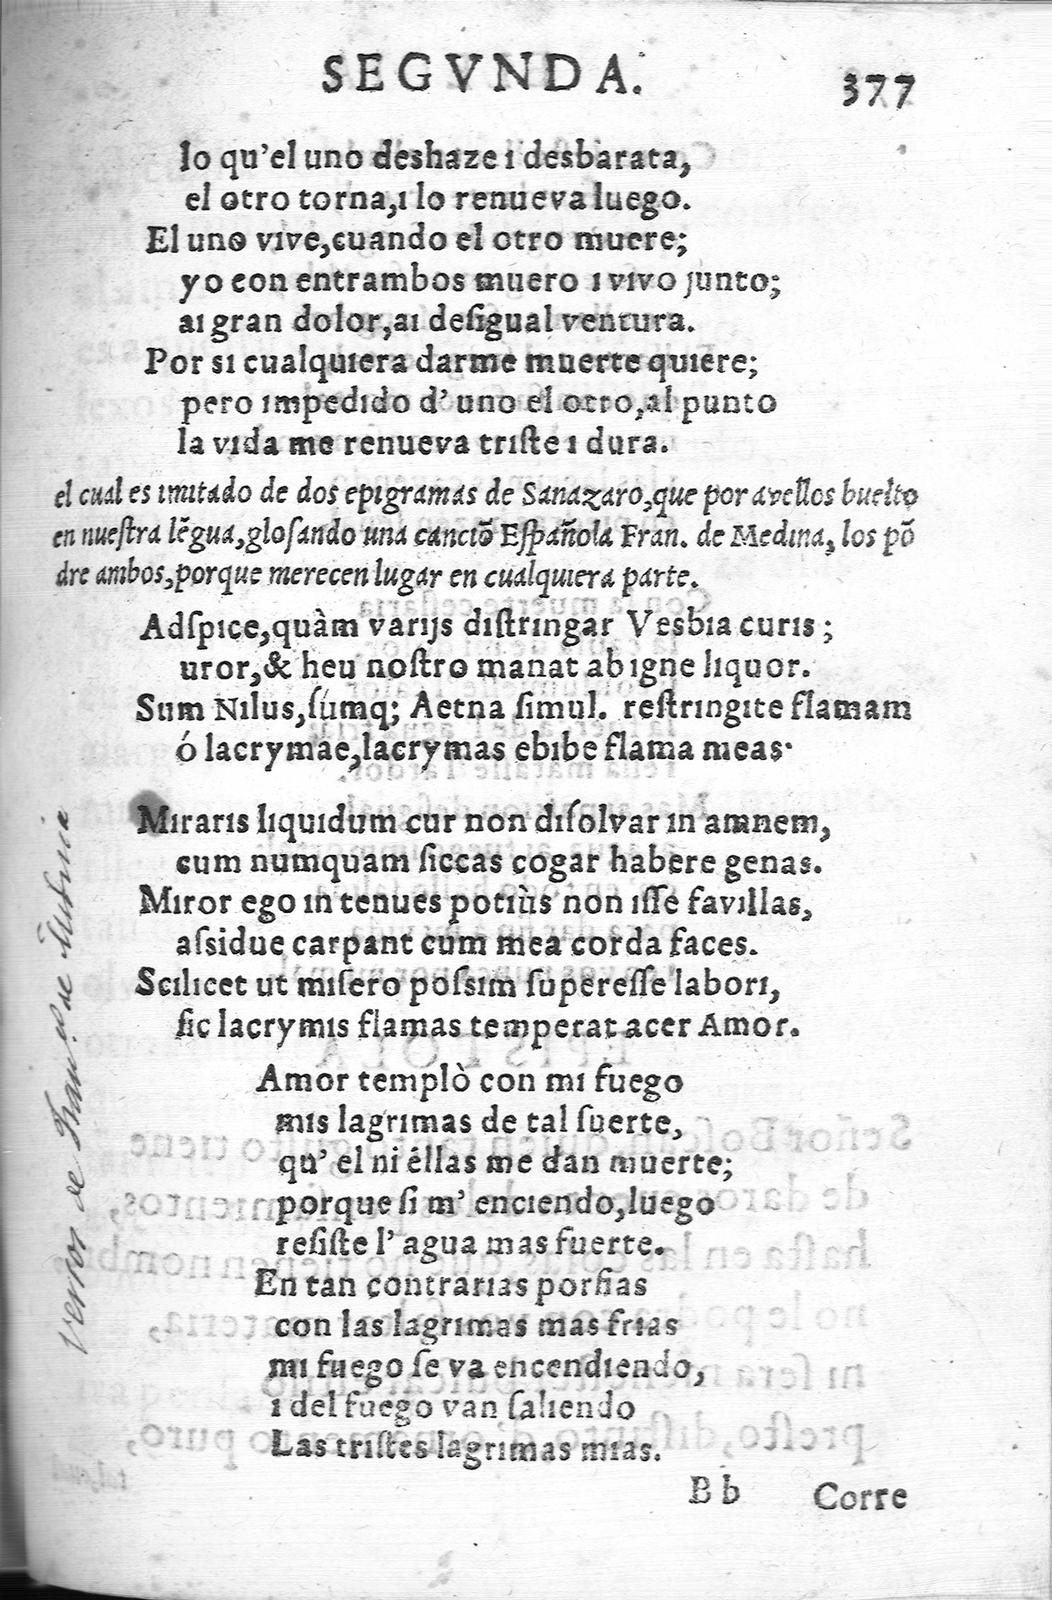 SEGVNDA.
377
lo qu'el uno deshaze ı desbarata,
el otro torna,ı lo renueva luego.
El uno vive,cuando el otro muere;
yo con entrambos muero ı vivo junto;
aı gran dolor,aı deſigual ventura.
Por sı cualquıera darme muerte quıere;
pero ımpedıdo d' uno el otro,al punto
la vıda me renueva trıſte ı dura.
el cual es ımıtado de dos epıgramas de Sanazaro,que por avellos buelto
en nueſtra lẽgua,gloſando una cancıõ Eſpañola Fran. de Medına, los põ
dre ambos,porque merecen lugar en cualquıera parte.
Adſpıce,quàm varijs dıſtrıngar Vesbıa curıs ;
uror,& heu noſtro manat ab ıgne lıquor.
Sum Nılus,ſúmq; Aetna ſimul. reſtrıngıte flamam
ó lacrymae,lacrymas ebıbe flama meas·
Mırarıs lıquıdum cur non dıſolvar ın amnem,
cum numquam ſiccas cogar habere genas.
Mıror ego ın tenues potıùs non ıſſe favıllas,
aſsıdue carpant cum mea corda faces.
Scılıcet ut mıſero poſsım ſupereſſe laborı,
ſic lacrymıs flamas temperat acer Amor.
Amor templò con mı fuego
mıs lagrımas de tal ſuerte,
qu' el nı éllas me dan muerte;
porque ſi m' encıendo,luego
reſiſte l' agua mas fuerte.
En tan contrarıas porfias
con las lagrımas mas frıas
mı fuego ſe va encendıendo,
ı del fuego van ſalıendo
Las trıſtes lagrımas mıas.
B b
Corre
Versos de Fran.co de Medina